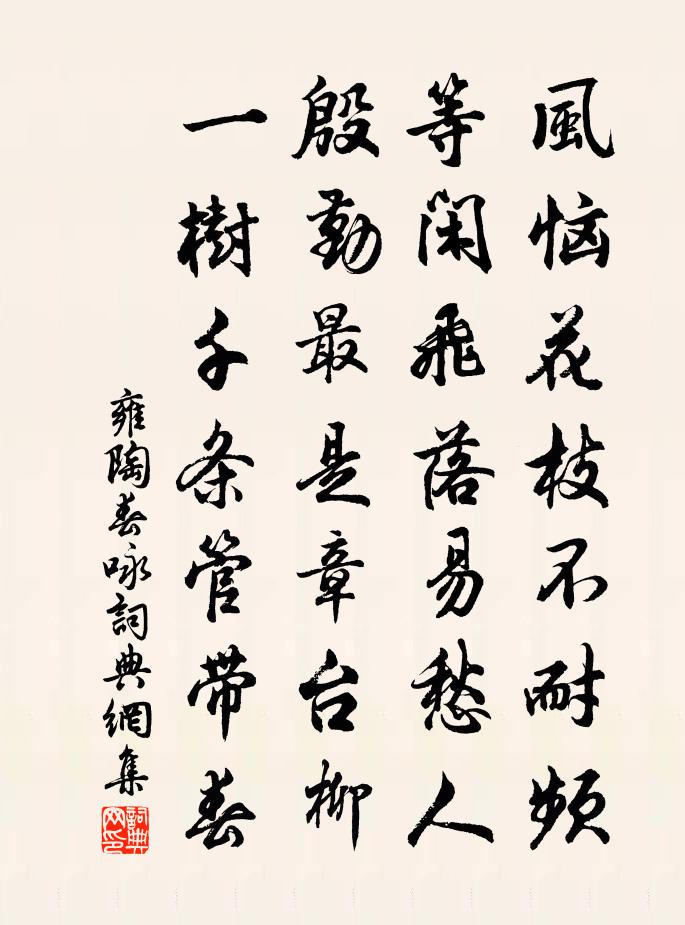 風恼花枝不耐頻
等閑飛落易愁人
殷勤最是章台柳
一樹千条管带春
雍陶春咏詞典網集
詞典網印